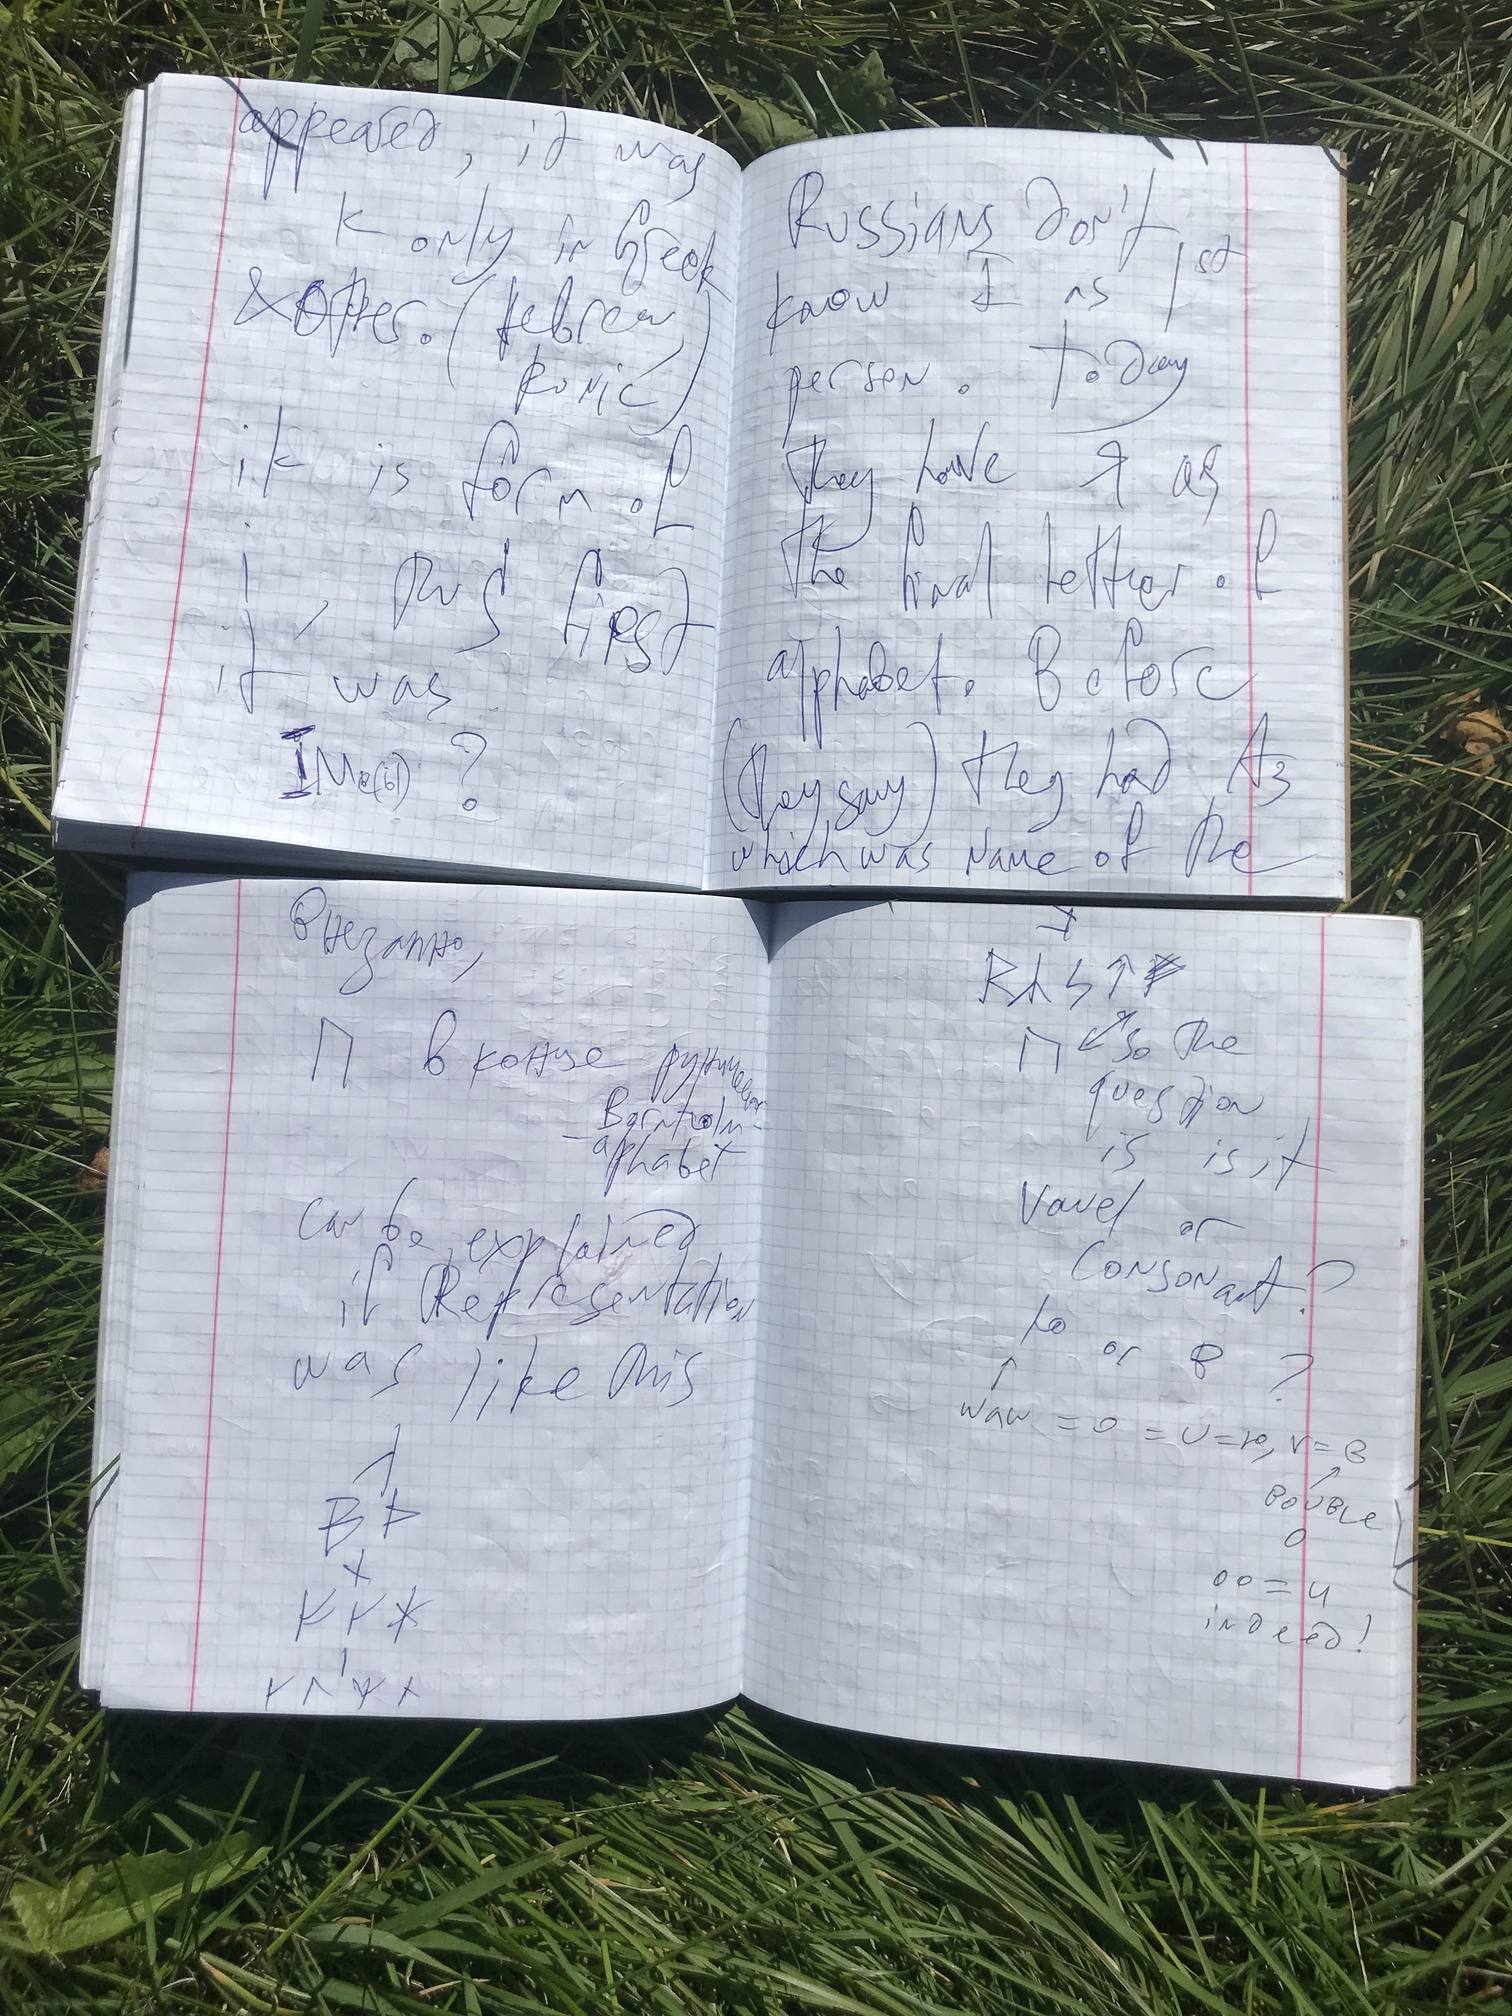 appeared, it was
K only in Greek
& Other. (Hebrew,
Runic)
ik is form of
i, thus first
it was
IMe(i)?
Russians don't
know I as 1st
person. Today
they have Я as
the final letter of
alphabet. Before
(they say) they had Аз
which was name of the
Внезапно,
П в конце
Bornholm-
alphabet
can be explained
if Representation
was like this
B
R
П so the
question
is is it
Vowel or
Consonant?
ю or в ?
↑
waw = o = U = ю, V = B
DOUBLE
O
oo = u
indeed!